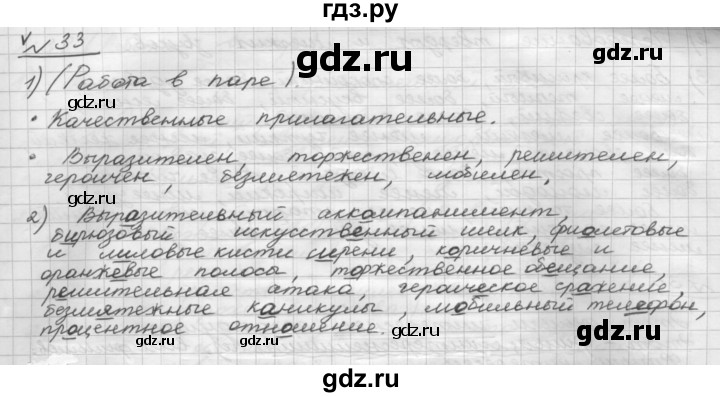 гдз.ру
√ № 33
gdz.ru
1) (Работа в паре).
gdz.ru gdz.ru
• Качественные прилагательные.
• Выразителен, торжественен, решителен,
героичен, безмятежен, мобилен.
gdz.ru gdz.ru
2) Выразительный аккомпанимент,
бирюзовый искусственный шелк, фиолетовые
и лиловые кисти сирени, коричневые и
оранжевые полосы, торжественное обещание,
решительная атака, героическое сражение,
безмятежные каникулы, мобильный телефон,
процентное отношение.
gdz.ru gdz.ru
gdz.ru